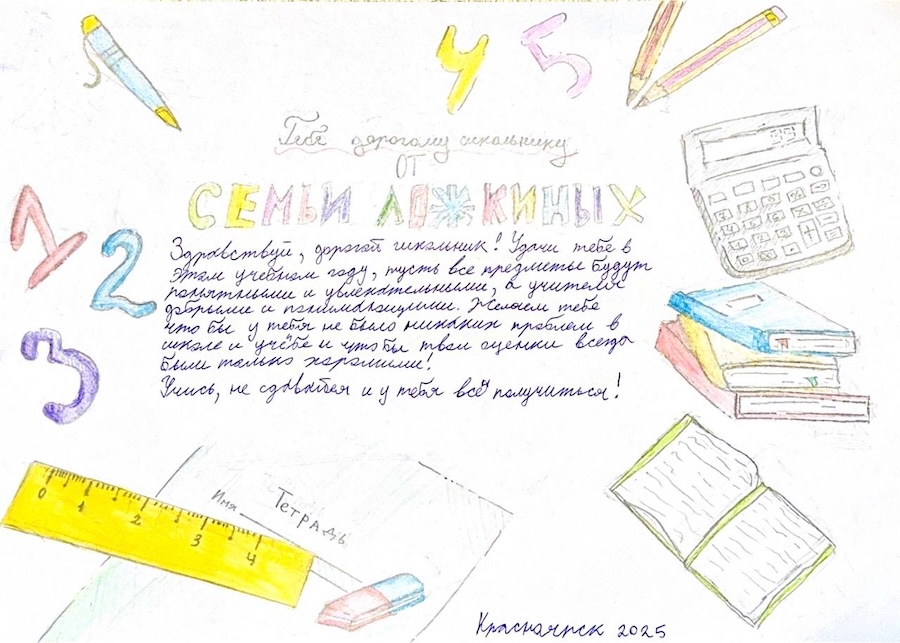 4 5
Тебе дорогому школьнику
от
СЕМЬИ ЛОЖКИНЫХ
1
2
3
Здравствуй, дорогой школьник! Удачи тебе в
этом учебном году, пусть все предметы будут
понятными и увлекательными, а учителя
добрыми и понимающими. Желаем тебе
что бы у тебя не было никаких проблем в
школе и учёбе и что бы твои оценки всегда
были только хорошими!
Учись, не сдавайся и у тебя всё получиться!
0 1 2 3 4
Имя
Тетрадь
Красноярск 2025